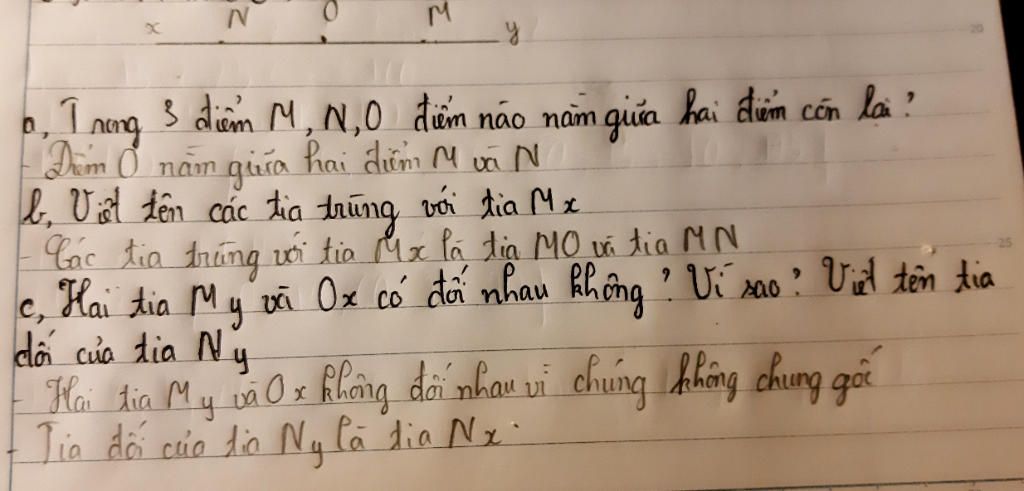 x N O M y
20
a, Trong 3 điểm M, N, O điểm nào nằm giữa hai điểm còn lại?
- Điểm O nằm giữa hai điểm M và N
b, Viết tên các tia trùng với tia Mx
- Các tia trùng với tia Mx là tia MO và tia MN
25
c, Hai tia My và Ox có đối nhau không? Vì sao? Viết tên tia
đối của tia Ny
- Hai tia My và Ox không đối nhau vì chúng không chung gốc
- Tia đối của tia Ny là tia Nx.